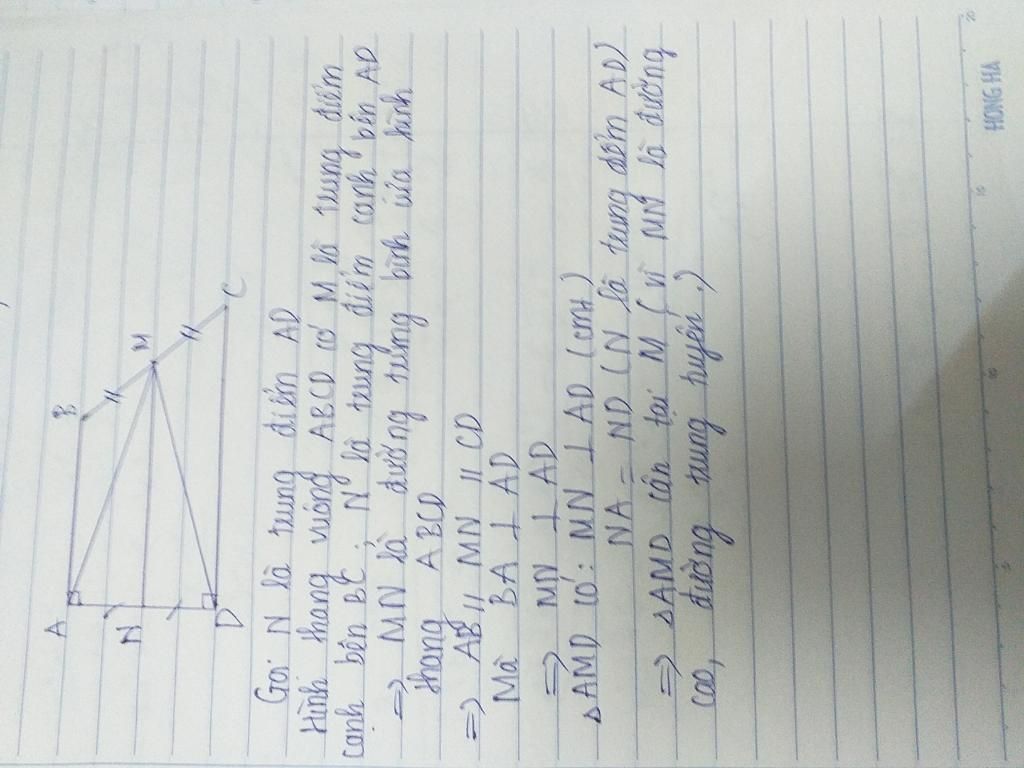 A
B
N
M
D
C
Gọi N là trung điểm AD
Hình thang vuông ABCD có M là trung điểm
cạnh bên BC, N là trung điểm cạnh bên AD
=> MN là đường trung bình của hình
thang ABCD
=> AB // MN // CD
Mà BA ⊥ AD
=> MN ⊥ AD
△AMD có: MN ⊥ AD (cmt)
NA = ND (N là trung điểm AD)
=> △AMD cân tại M (vì MN là đường
cao, đường trung tuyến.)
HONG HA
5
10
15
20